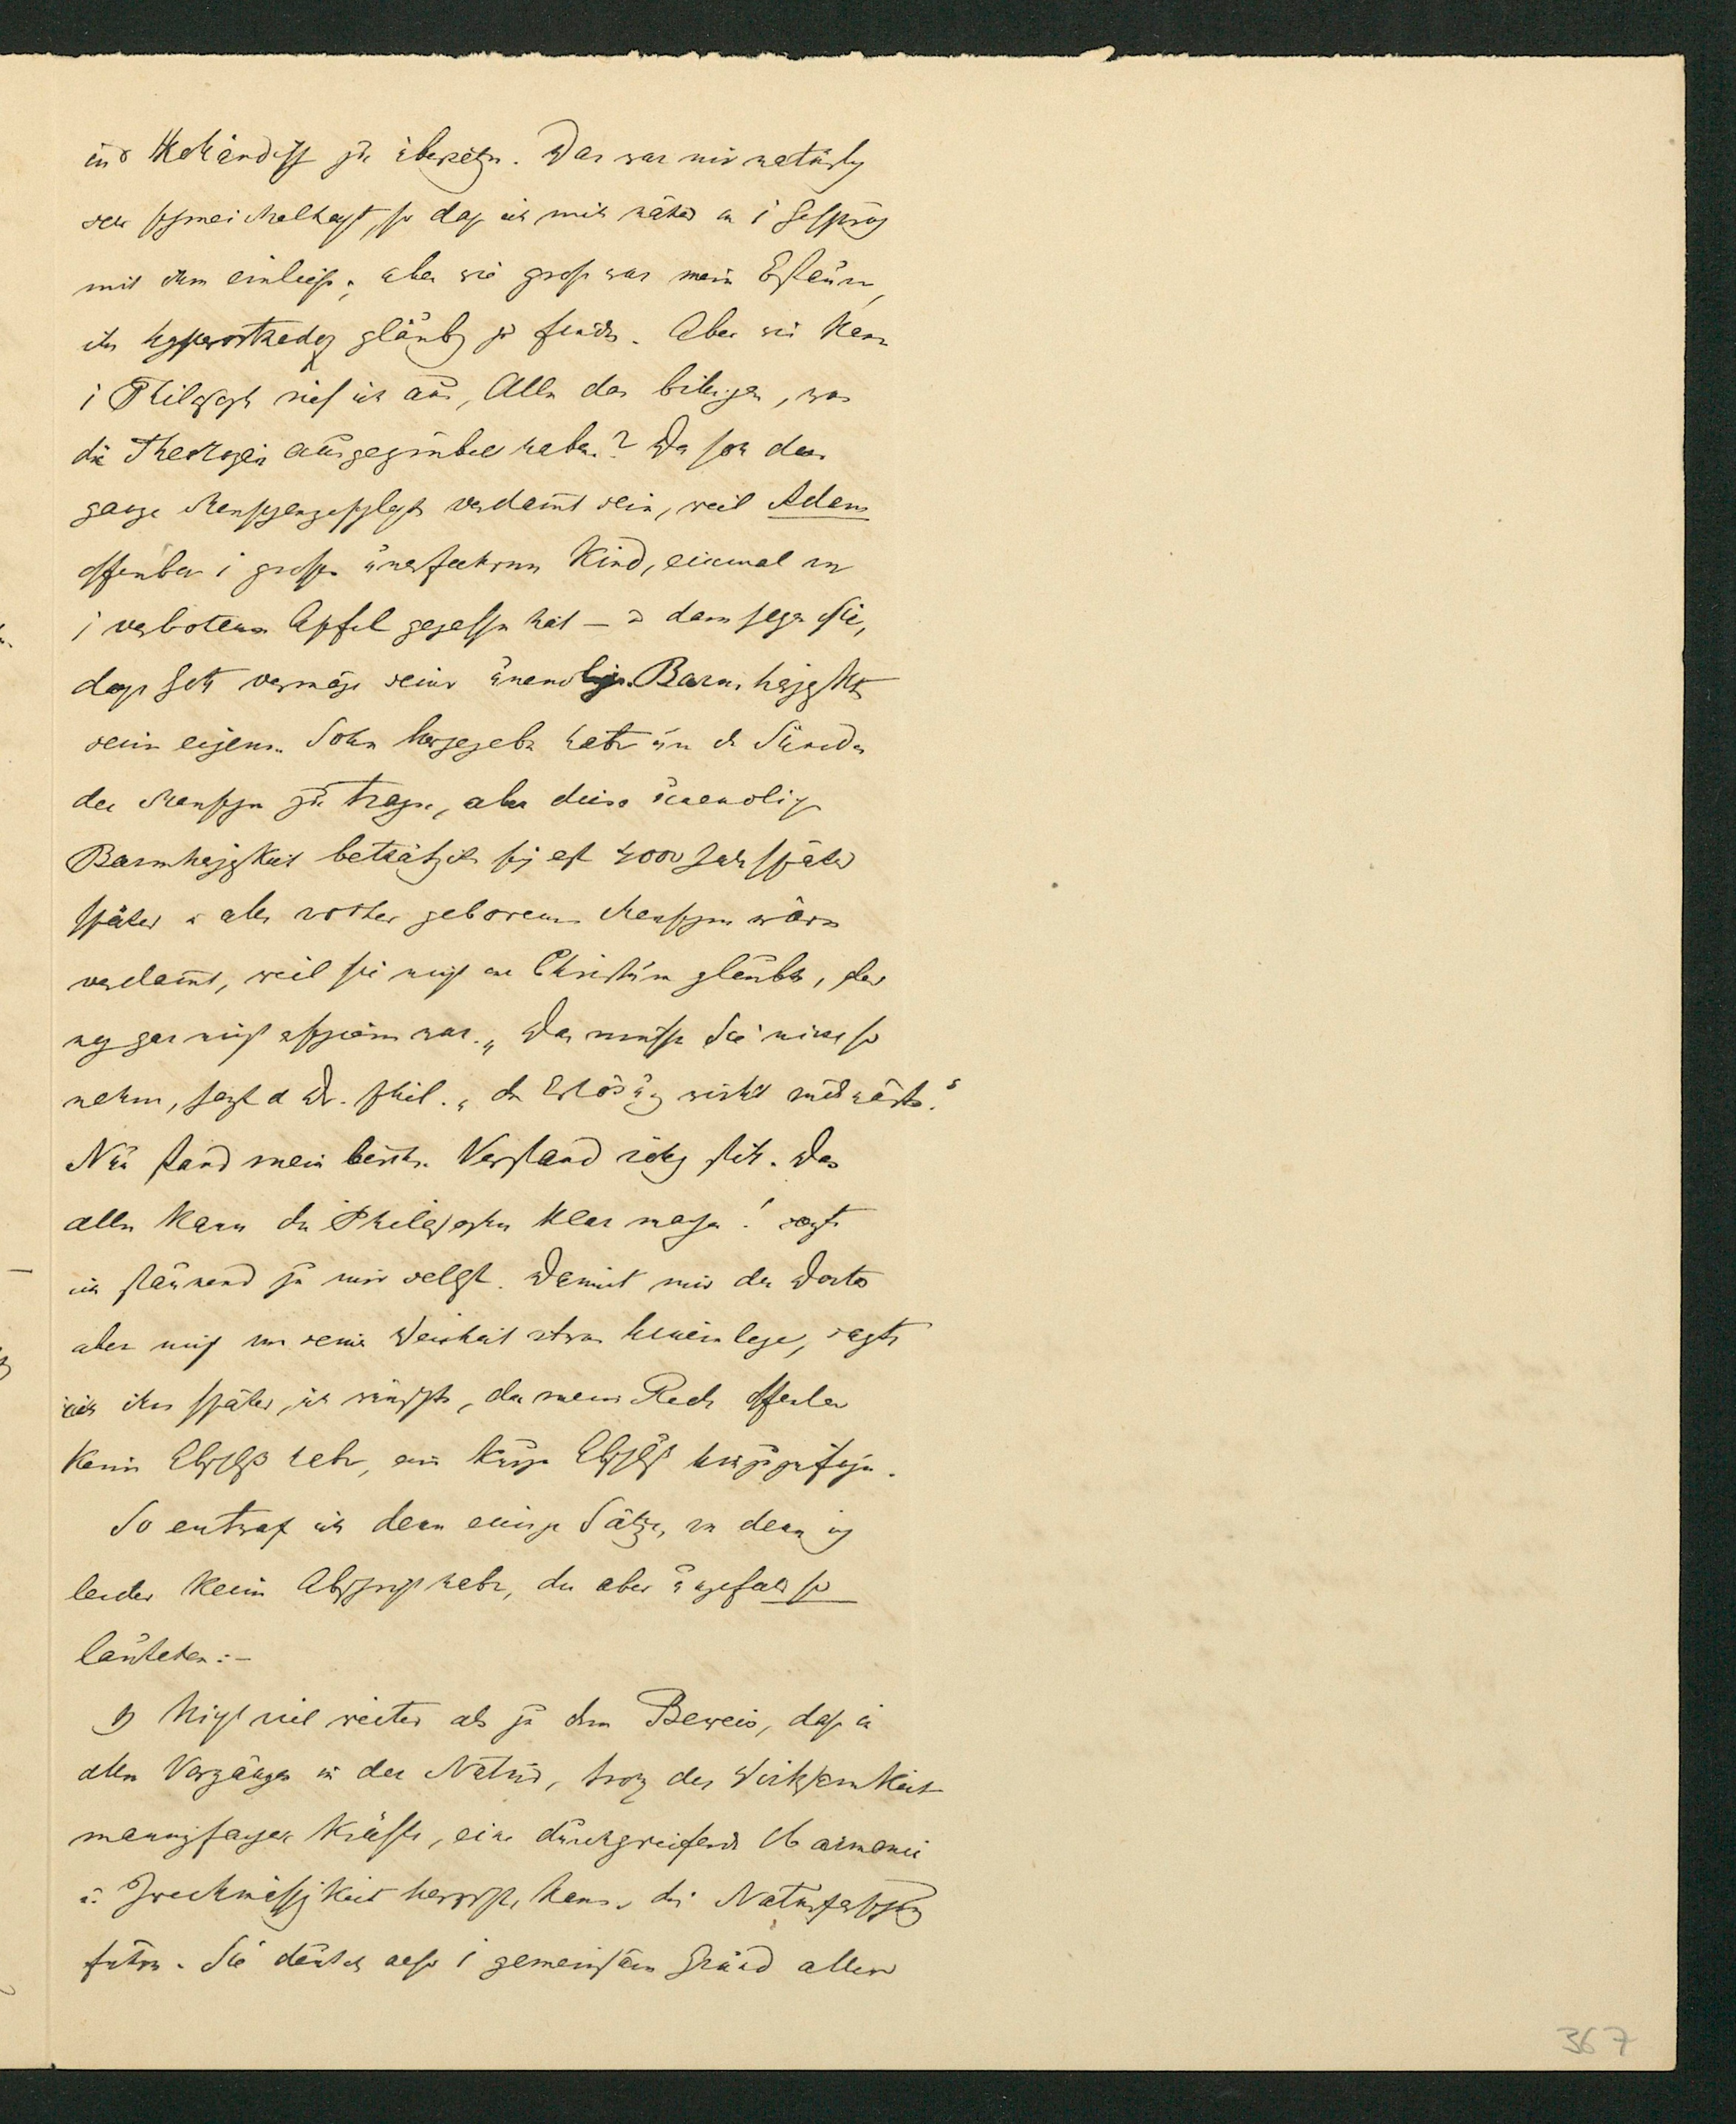 ins Holländisch zu übersetzen. Das war mir natürlich
sehr schmeichelhaft, so dass ich mich näher in i Gespräch
mit ihm einliess; aber wie gross war mein Erstaunen,
ihn hyperorthodox gläubig zu finden. Aber wie kann
i Philosoph rief ich aus, Alles das billigen, was
die Theologen ausgegrübelt haben? Da soll das
ganze Menschengeschlecht verdammt sein, weil Adam
offenbar i grosses unerfahrenes Kind, einmal von
i verbotenen Apfel gegessen hat – u dann sagen Sie,
dass Gott vermöge seiner unendlichen Barmherzigkeit
seinen eigenen Sohn hergegeben habe um die Sünden
der Menschen zu tragen, aber diese unendliche
Barmherzigkeit bethätigte sich erst 4000 Jahr später
später u alle vorher geborenen Menschen wären
verdammt, weil sie nicht an Christum glaubten, der
noch gar nicht erschienen war. „Das müssen Sie nicht so
nehmen, sagt d Dr. phil. „die Erlösung wirkt rückwärts."
Nun stand mein bischen Verstand völlig still. Das
alles kann die Philosophie klar machen! sagte
ich staunend zu mir selbst. Damit mir der Doctor
aber nicht von seiner Weisheit etwas hineinlege, sagte
ich ihm später, ich wünschte, da meine Rede offenbar
keinen Abschluss habe, einen kurzen Abschluss hinzuzufügen.
So entwarf ich denn einige Sätze, von denen ich
leider keine Abschrift habe, die aber ungefähr so
lauteten:–
Nicht viel weiter als zu dem Beweis, dass in
allen Vorgängen in der Natur, trotz der Wirksamkeit
mannigfacher Kräfte, eine durchgreifende Harmonie
u. Zweckmässigkeit herrscht, kann die Naturforschung
führen. Sie deutet also i gemeinsamen Grund aller
367